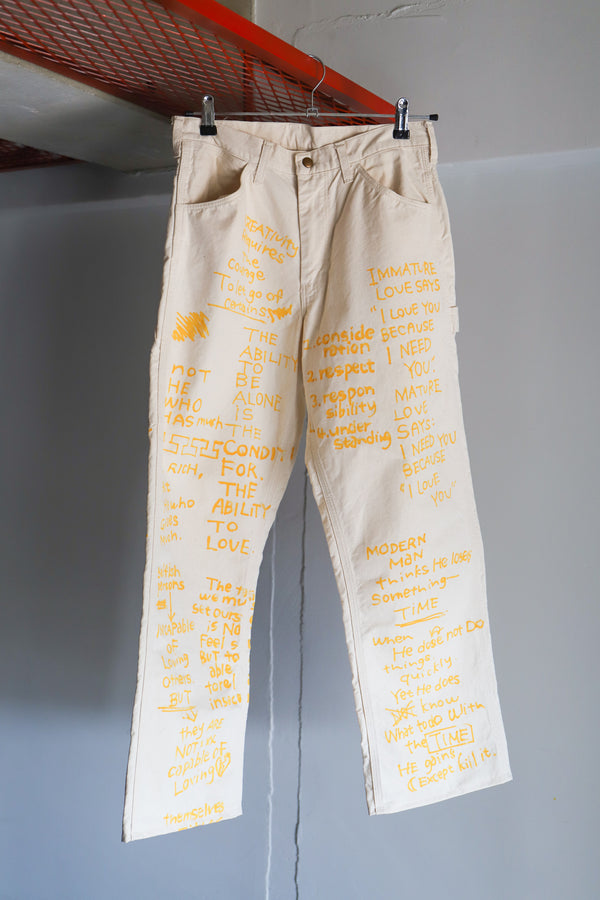 CREATIVITY
requires
the
courage
To let go of
THE
ABILITY
TO
BE
ALONE
IS
THE
CONDITI
FOR.
THE
ABILITY
TO
LOVE.
not
HE
WHO
HAS much
RICH,
who
much.
INCAPABLE
OF
Loving
Others.
BUT
they ARE
NOT
capable OF
Loving
themselves
we mu
set ours
is No
Feel s
BUT to
able
to
inside
1. conside
ration
2. respect
3. respon
sibility
4. under
standing
IMMATURE
LOVE SAYS
"I LOVE YOU
BECAUSE
I NEED
YOU."
MATURE
LOVE
SAYS:
I NEED YOU
BECAUSE
"I LOVE
YOU"
MODERN
MAN
thinks He loses
Something—
TIME
when
He dose not DO
things
quickly
Yet He does
know
What to do With
the TIME
HE gains
(Except kill it.